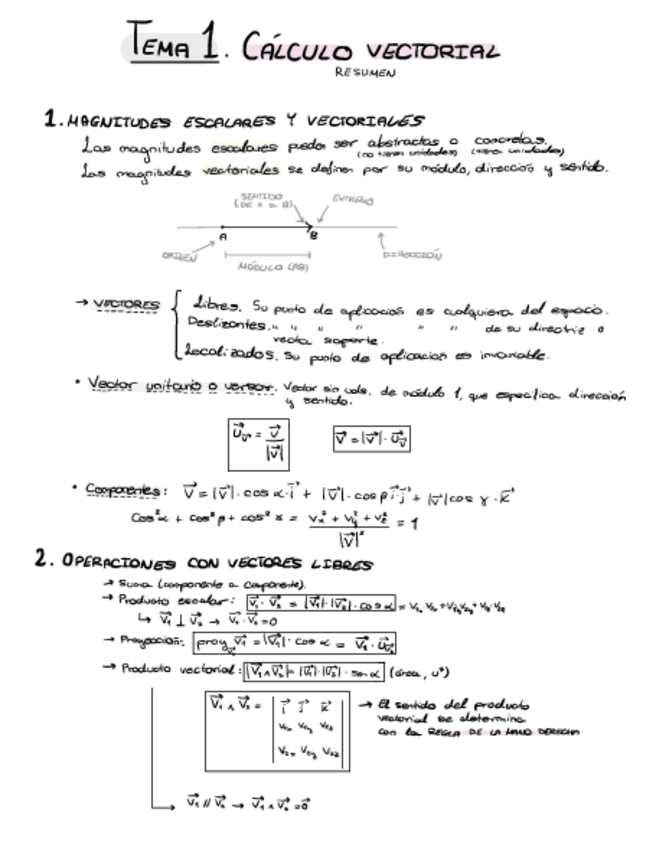 TEMA 1. CÁLCULO VECTORIAL
RESUMEN
1. MAGNITUDES ESCALARES Y VECTORIALES
Las magnitudes escalares pueden ser abstractas o concretas.
(no tienen unidades) (tienen unidades)
Las magnitudes vectoriales se definen por su módulo, dirección y sentido.
SENTIDO
(DE A a B)
EXTREMO
A
B
ORIGEN
MÓDULO (AB)
DIRECCIÓN
→ VECTORES
Libres. Su punto de aplicación es cualquiera del espacio.
Deslizantes. " " " " " de su directriz o
recta soporte.
Localizados. Su punto de aplicación es invariable.
• Vector unitario o versor. Vector sin uds. de módulo 1, que especifica dirección
y sentido.
u⃗v = v⃗ / |v⃗|
v⃗ = |v⃗| · u⃗v
• Componentes: v⃗ = |v⃗| · cos α · i⃗ + |v⃗| · cos β · j⃗ + |v⃗| cos γ · k⃗
cos²α + cos²β + cos²γ = (vx² + vy² + vz²) / |v⃗|² = 1
2. OPERACIONES CON VECTORES LIBRES
→ Suma (componente a componente).
→ Producto escalar: v⃗₁ · v⃗₂ = |v⃗₁| · |v⃗₂| · cos α
↳ v⃗₁ ⊥ v⃗₂ → v⃗₁ · v⃗₂ = 0
→ Proyección: proy v⃗₁ = |v⃗₁| · cos α = v⃗₁ · u⃗v₂
→ Producto vectorial: |v⃗₁ ∧ v⃗₂| = |v⃗₁| · |v⃗₂| · sen α (área, u²)
v⃗₁ ∧ v⃗₂ = | i⃗ j⃗ k⃗ |
v₁x v₁y v₁z
v₂x v₂y v₂z
→ El sentido del producto
vectorial se determina
con la REGLA DE LA MANO DERECHA
v⃗₁ // v⃗₂ → v⃗₁ ∧ v⃗₂ = 0⃗